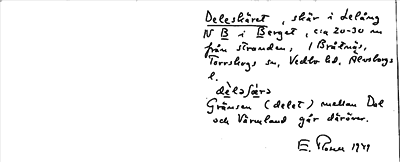 Deleskäret, skär i Delång
N B i Berget, c:a 20-30 m
från stranden, i Brålmäs,
Torrskogs sn, Vedbo hd, Älvsborgs
l.
dèləʃærə
Gränsen (delet) mellan Dal
och Värmland går däröver.
E. Rosen 1949